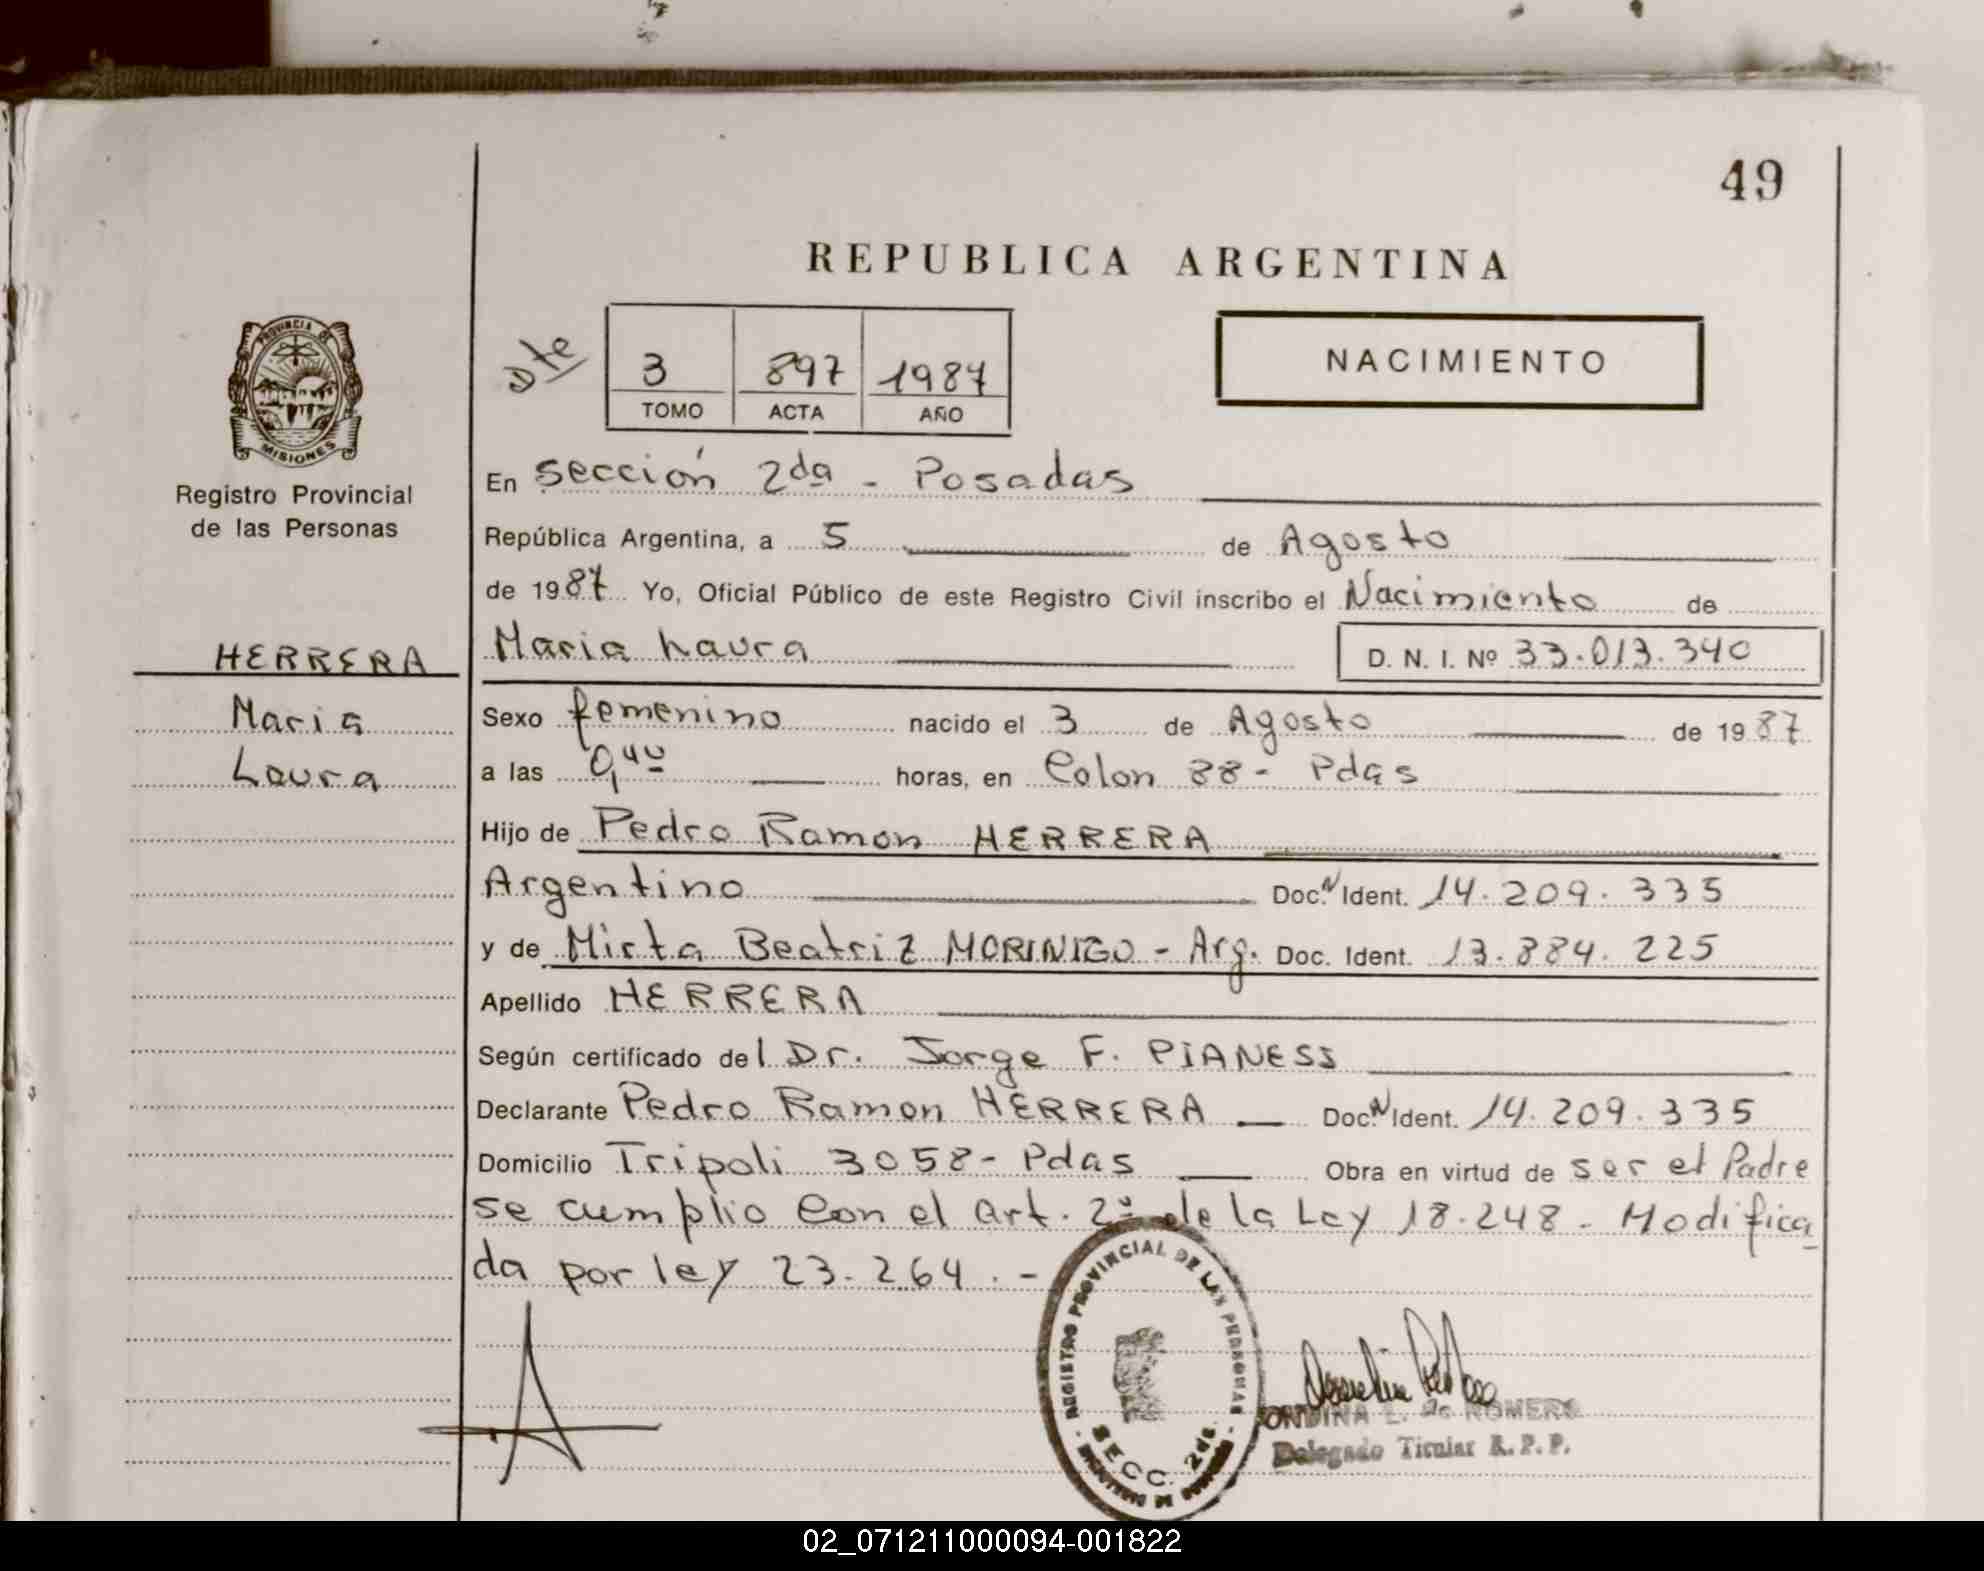 49
REPUBLICA ARGENTINA
Dte
3 897 1987
TOMO ACTA AÑO
NACIMIENTO
PROVINCIA DE
MISIONES
Registro Provincial
de las Personas
HERRERA
Maria
Laura
En sección 2da - Posadas
República Argentina, a 5 de Agosto
de 1987 Yo, Oficial Público de este Registro Civil inscribo el Nacimiento de
Maria Laura D. N. I. Nº 33.013.340
Sexo femenino nacido el 3 de Agosto de 1987
a las 0,40 horas, en Colon 88 - Pdas
Hijo de Pedro Ramon HERRERA
Argentino Doc. N Ident. 14.209.335
y de Mirta Beatriz MORINIGO - Arg. Doc. Ident. 13.884.225
Apellido HERRERA
Según certificado del Dr. Jorge F. PIANESS
Declarante Pedro Ramon HERRERA Doc. N Ident. 14.209.335
Domicilio Tripoli 3058 - Pdas Obra en virtud de ser el Padre
se cumplio con el art. 2º de la Ley 18.248 - Modifica
da por ley 23.264. -
REGISTRO PROVINCIAL DE LAS PERSONAS
SECC. 2da.
ONDINA L. de ROMERO
Delegado Titular R. P. P.
02_071211000094-001822